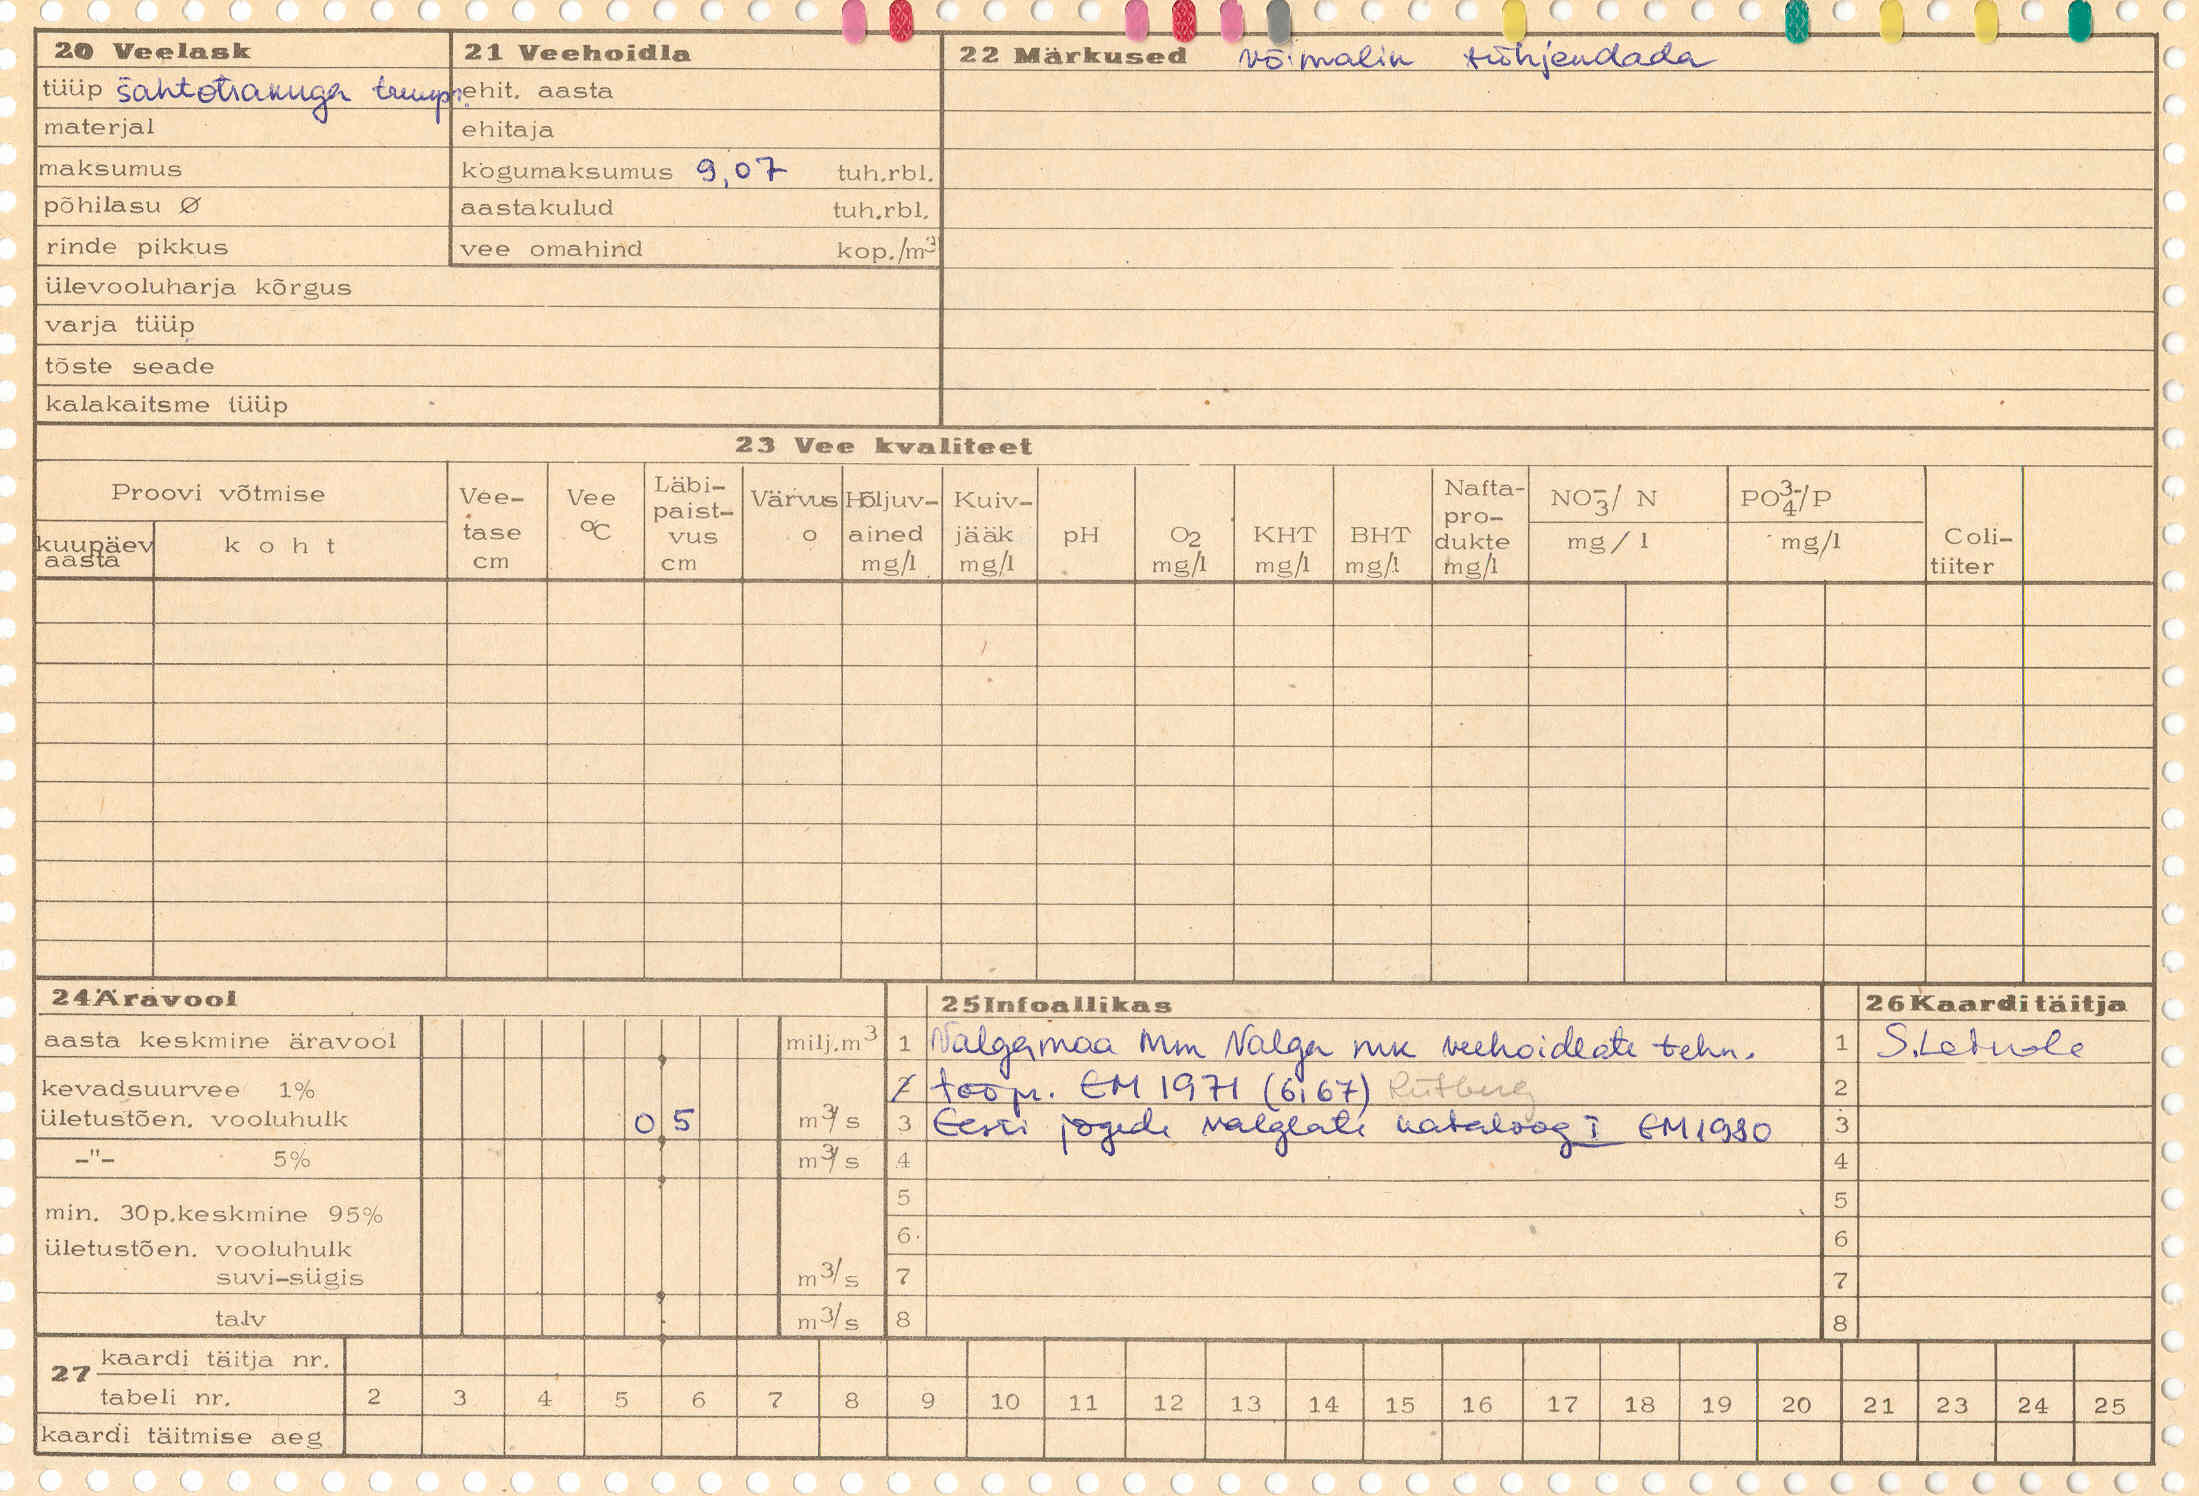 20 Veelask
tüüp šahtotravuga trump.
materjal
maksumus
põhilasu Ø
rinde pikkus
ülevooluharja kõrgus
varja tüüp
tõste seade
kalakaitsme tüüp
21 Veehoidla
ehit. aasta
ehitaja
kogumaksumus 9,07 tuh.rbl.
aastakulud tuh.rbl.
vee omahind kop./m³
22 Märkused võimalik tühjendada
23 Vee kvaliteet
Proovi võtmise
kuupäev aasta
koht
Vee-tase cm
Vee °C
Läbi-paist-vus cm
Värvus o
Hõljuv-ained mg/l
Kuiv-jääk mg/l
pH
O₂ mg/l
KHT mg/l
BHT mg/l
Nafta-pro-dukte mg/l
NO₃⁻/ N mg/l
PO₄³⁻/P mg/l
Coli-tiiter
24 Äravool
aasta keskmine äravool milj.m³
kevadsuurvee 1%
ületustõen. vooluhulk 0 5 m³/s
-"- 5% m³/s
min. 30p.keskmine 95%
ületustõen. vooluhulk
suvi-sügis m³/s
talv m³/s
25 Infoallikas
1 Valgamaa MM Valga mk veehoidlate tehn.
2 toop. EM 1971 (6,67) Rütberg
3 Eesti jõgede valglate kataloog I EM 1980
4
5
6
7
8
26 Kaardi täitja
1 S.
2
3
4
5
6
7
8
27 kaardi täitja nr.
tabeli nr. 2 3 4 5 6 7 8 9 10 11 12 13 14 15 16 17 18 19 20 21 23 24 25
kaardi täitmise aeg